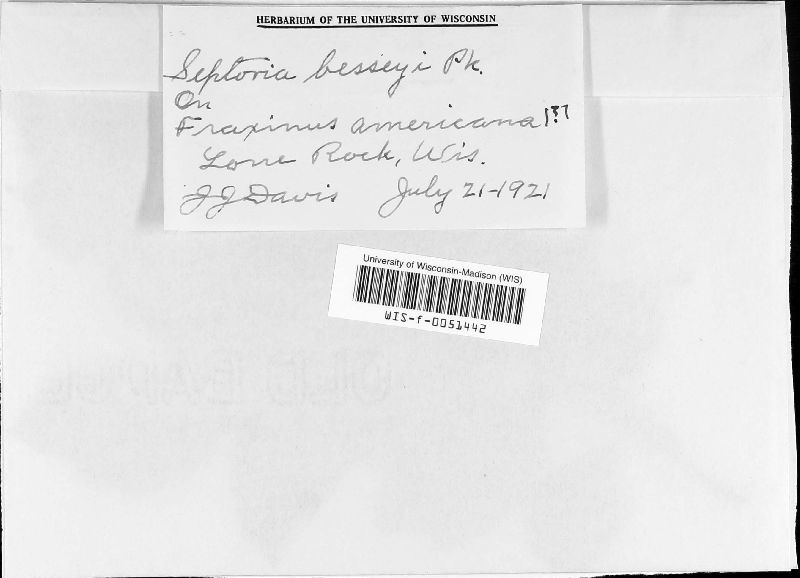 HERBARIUM OF THE UNIVERSITY OF WISCONSIN
Septoria besseyi Pk.
On
Fraxinus americana
Lone Rock, Wis.
JJ Davis July 21-1921
University of Wisconsin-Madison (WIS)
WIS-f-0051442